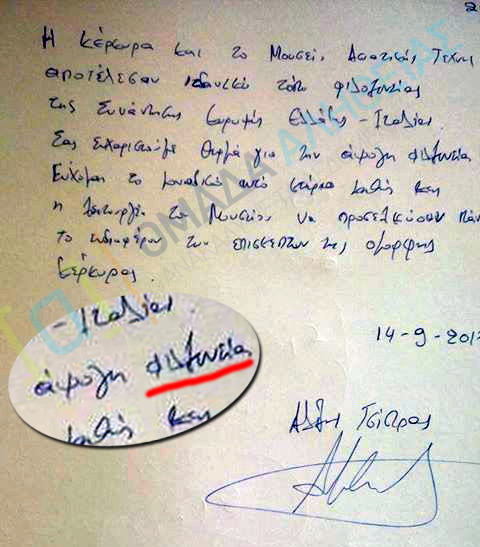 Η Κέρκυρα και το Μουσείο Ασιατικής Τέχνης
αποτέλεσαν ιδανικό τόπο φιλοξενίας
της Συνάντησης Κορυφής Ελλάδας - Ιταλίας
Σας ευχαριστούμε θερμά για την άψογη φιλοξενία
Εύχομαι το μοναδικό αυτό κτίριο καθώς και
η λειτουργία του Μουσείου να προσελκύσουν
το ενδιαφέρον των επισκεπτών της όμορφης
Κέρκυρας.
14-9-201
Αλέξης Τσίπρας
- Ιταλίας
άψογη φιλοξενία
καθώς και
ΟΜΑΔΑ ΑΛΗΘΕΙΑΣ